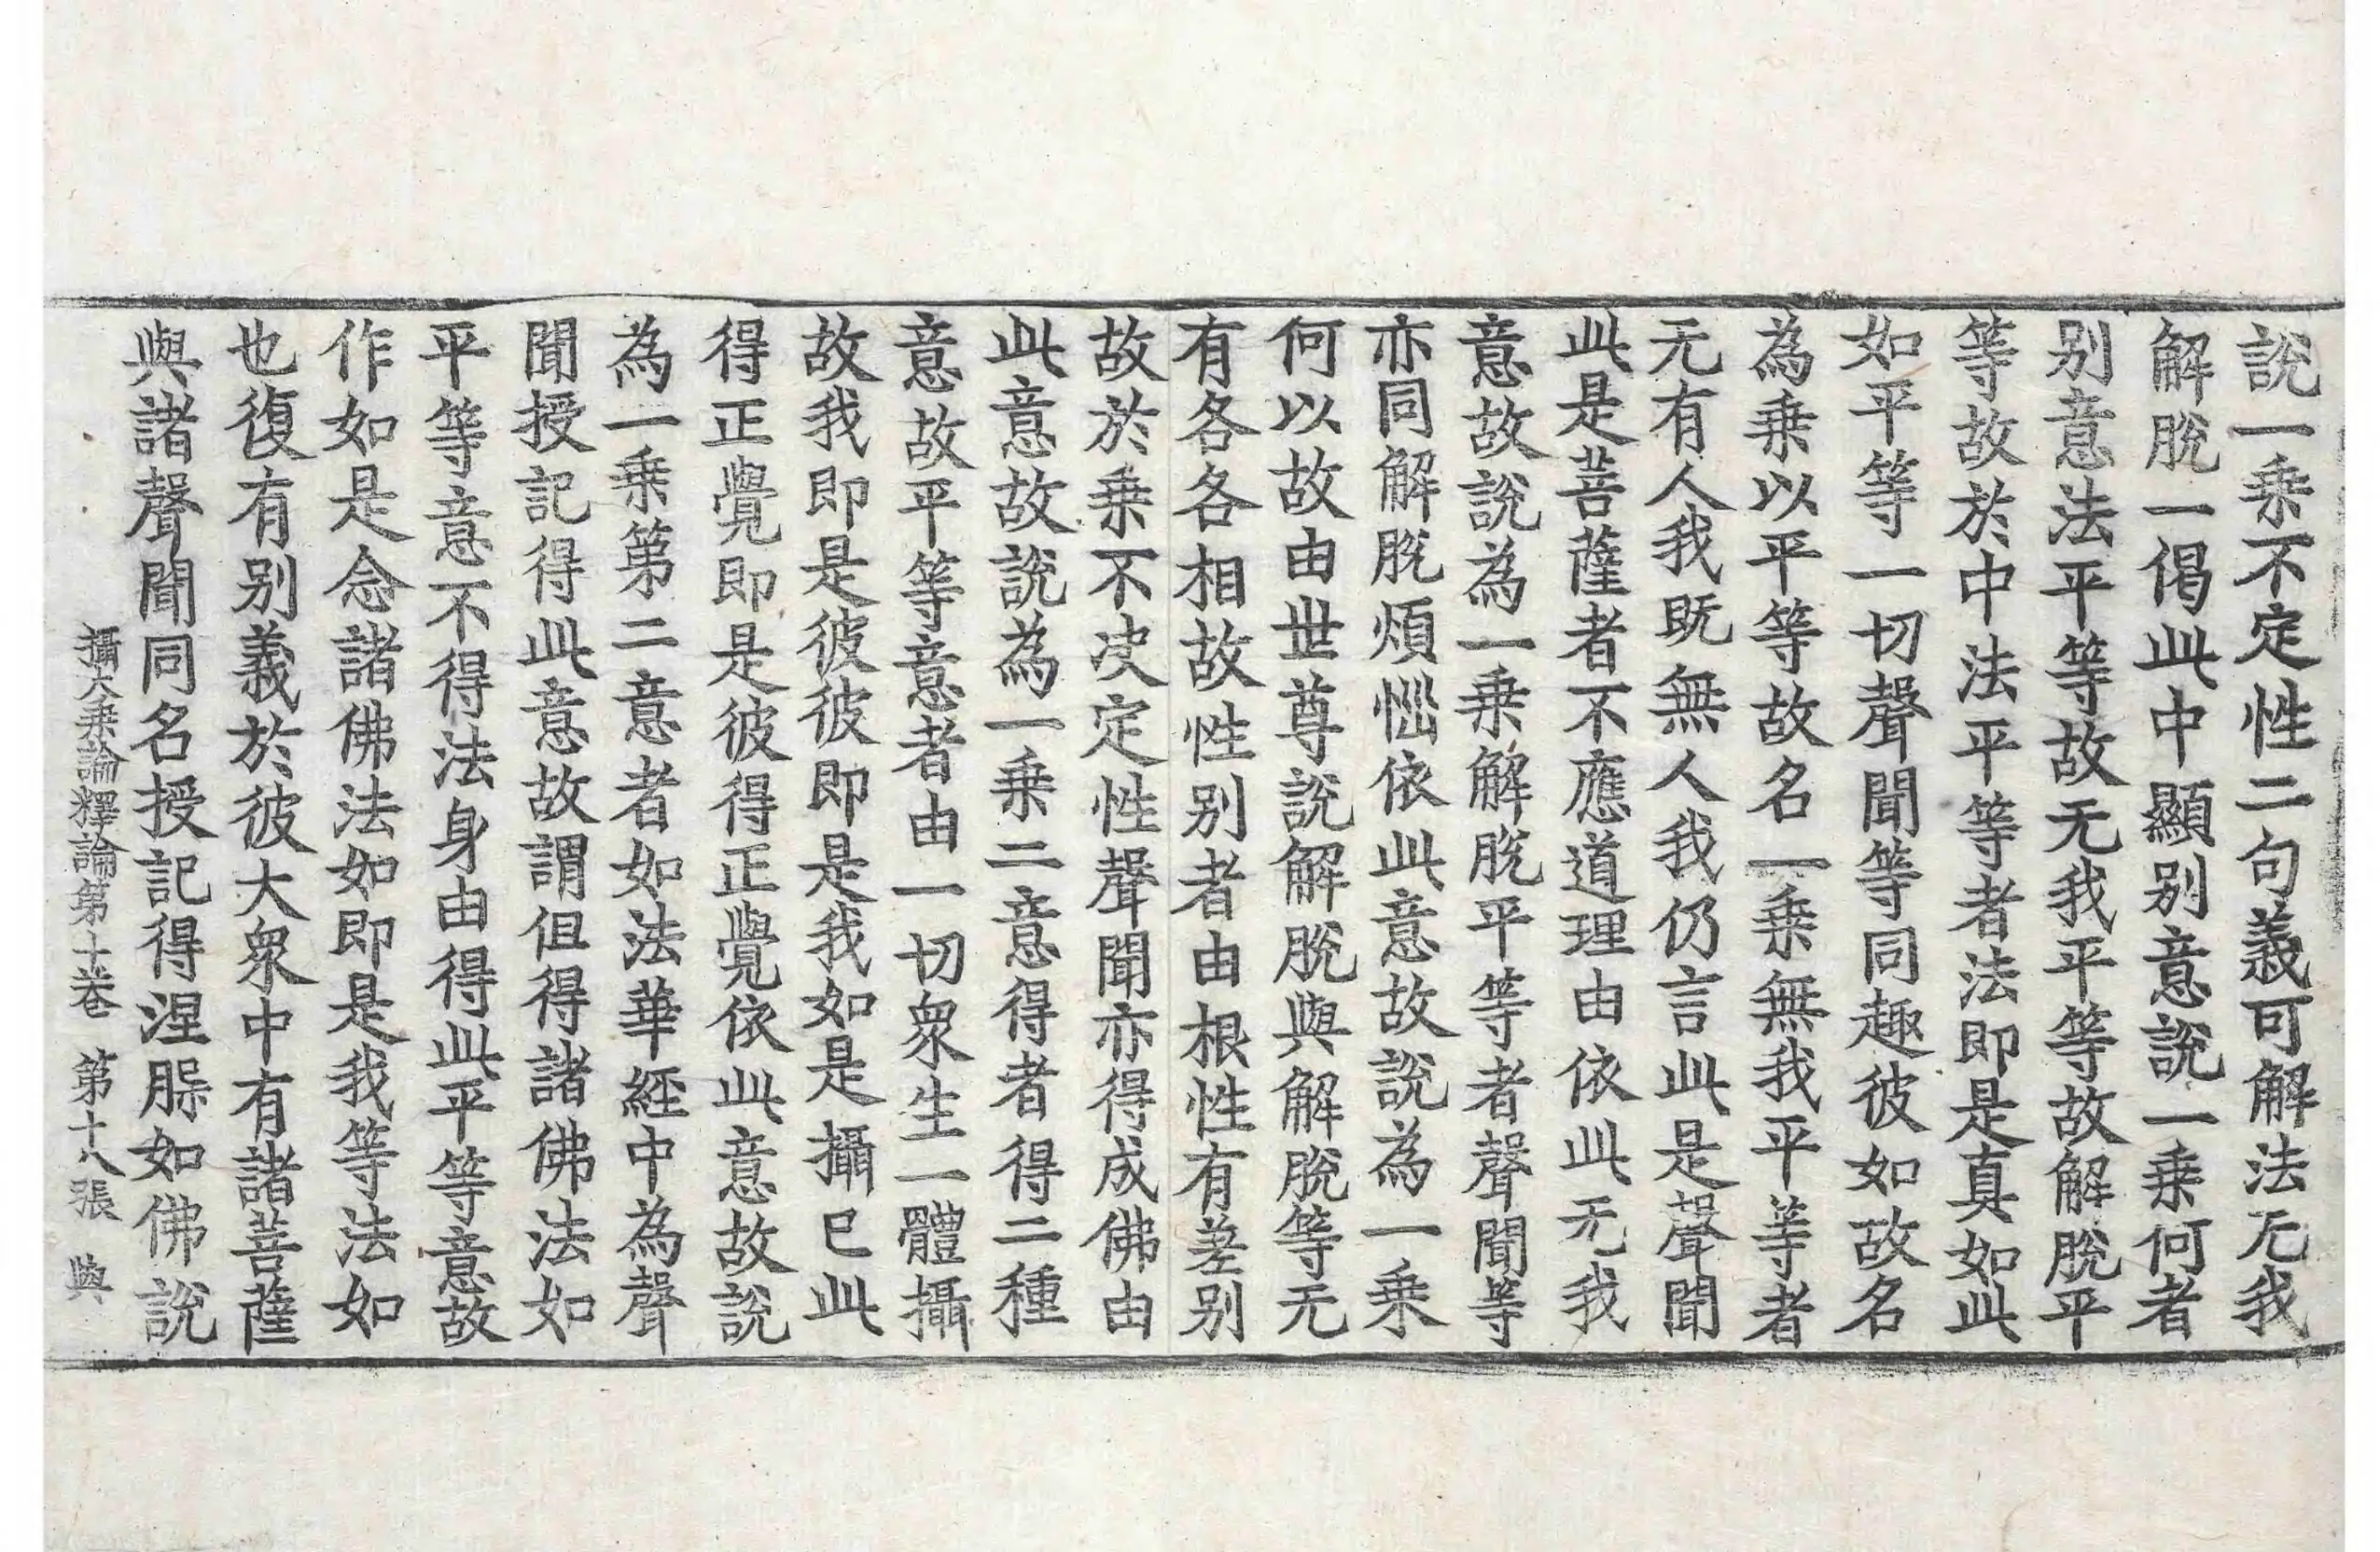 說一乗不定性二句義可解法无我
解脫一偈此中顯別意說一乗何者
別意法平等故无我平等故解脫平
等故於中法平等者法即是真如此
如平等一切聲聞等同趣彼如故名
為乗以平等故名一乗無我平等者
无有人我既無人我仍言此是聲聞
此是菩薩者不應道理由依此无我
意故說為一乗解脫平等者聲聞等
亦同解脫煩惱依此意故說為一乗
何以故由世尊說解脫與解脫等无
有各各相故性別者由根性有差別
故於乗不决定性聲聞亦得成佛由
此意故說為一乗二意得者得二種
意故平等意者由一切衆生一體攝
故我即是彼彼即是我如是攝已此
得正覺即是彼得正覺依此意故說
為一乗第二意者如法華經中為聲
聞授記得此意故謂但得諸佛法如
平等意不得法身由得此平等意故
作如是念諸佛法如即是我等法如
也復有別義於彼大衆中有諸菩薩
與諸聲聞同名授記得涅槃如佛說
攝大乗論釋論第十卷　第十八張　與